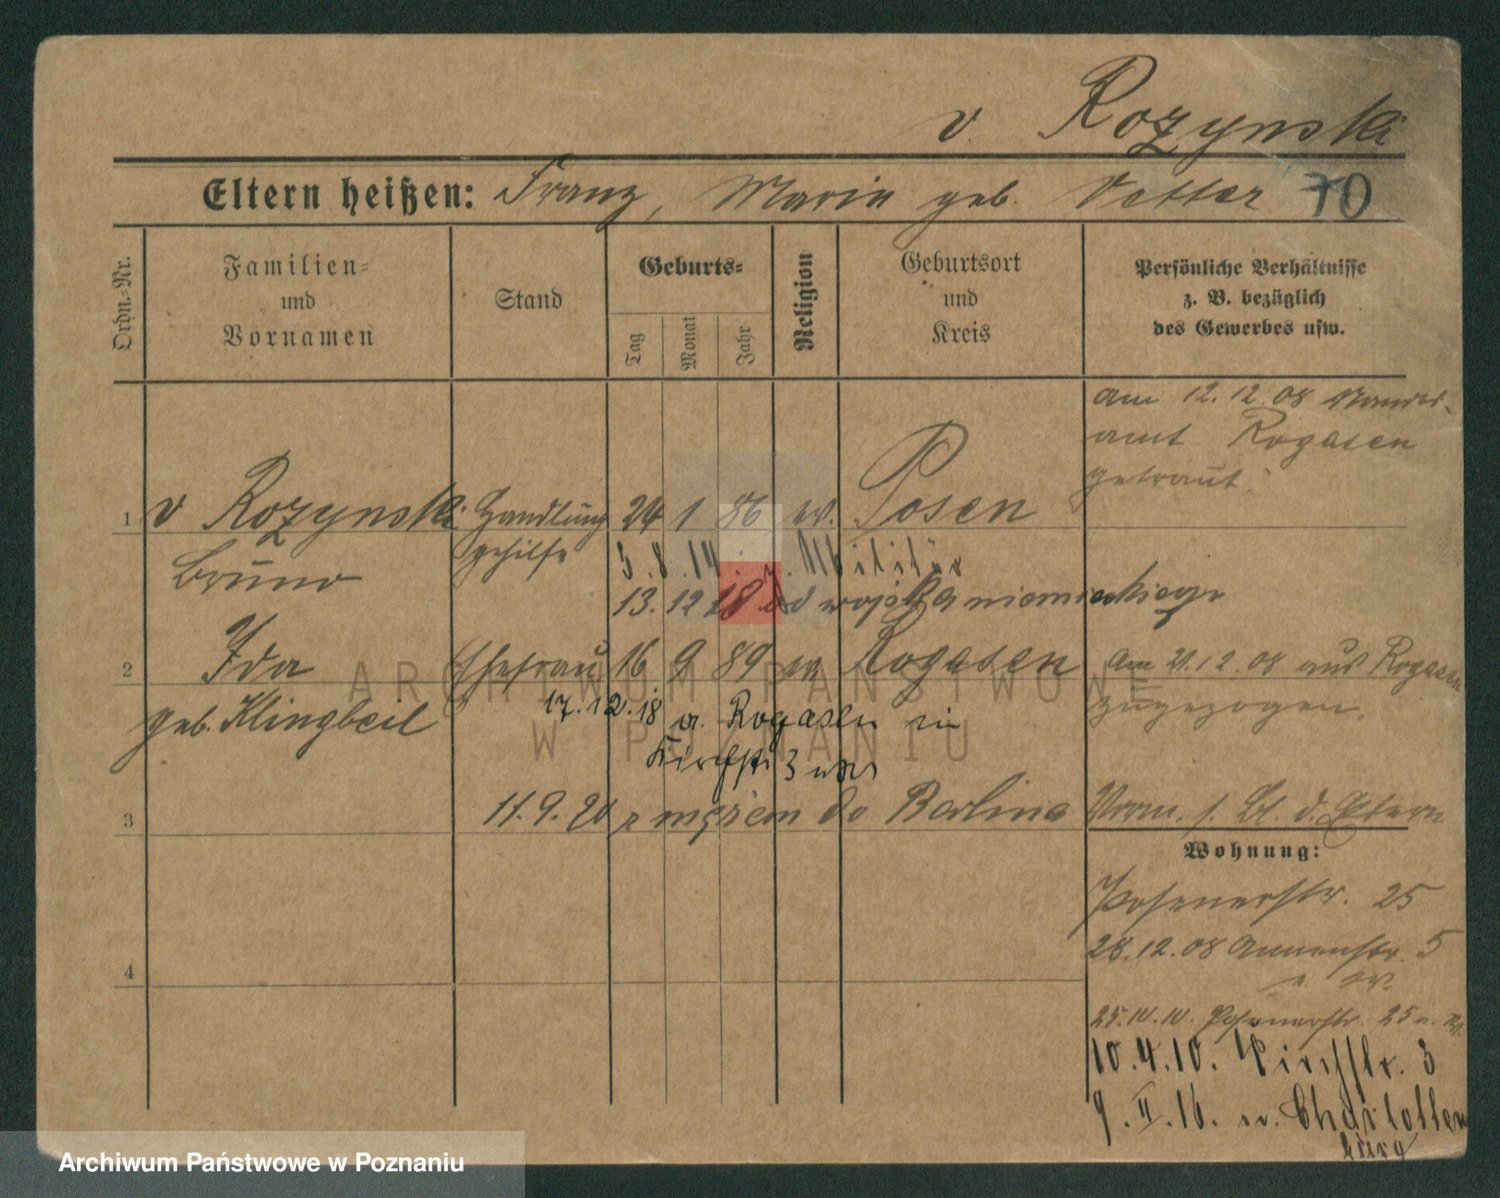 v. Rozynski
Eltern heißen: Franz, Maria geb. Vetter 70
Ordn.-Nr.
Familien-
und
Vornamen
Stand
Geburts-
Tag
Monat
Jahr
Religion
Geburtsort
und
Kreis
Persönliche Verhältnisse
z. B. bezüglich
des Gewerbes usw.
am 12.12.08 Standes-
amt Rogasen
getraut.
1 v Rozynski Handlung 24 1 86 ev. Posen
Bruno gehilfe
5.8.14. z. Militär
13. 12 18 od wojska niemieckiego
2 Ida Ehefrau 16 9 89 ev Rogasen
geb. Klingbeil
am 21.12.08 aus Rogasen
zugezogen.
17.12.18 a. Rogasen in
Kirchstr 3
3 11.9.20 z mężem do Berlina
d. Eltern
Wohnung:
Posenerstr. 25
28.12.08 Annenstr. 5
Posenerstr. 25
10.4.10. Kirchstr. 3
9.II.16. n. Charlotten
burg
4
ARCHIWUM PAŃSTWOWE
W POZNANIU
Archiwum Państwowe w Poznaniu